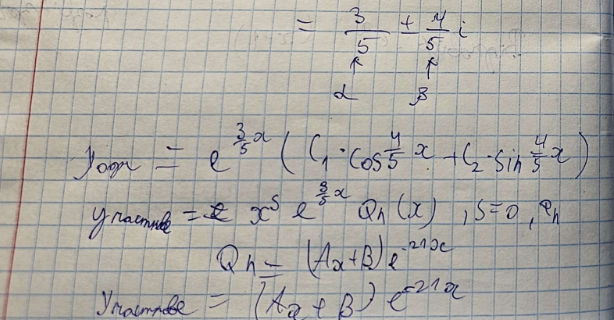 = 3/5 ± 4/5 i
↑ ↑
α β
y одн = e^{3/5 x} (C₁·cos 4/5 x + C₂·sin 4/5 x)
y частное = x^s e^{3/5 x} Qn(x), s=0,
Qn = (Ax+B) e^{-21x}
y частное = (Ax+B) e^{-21x}